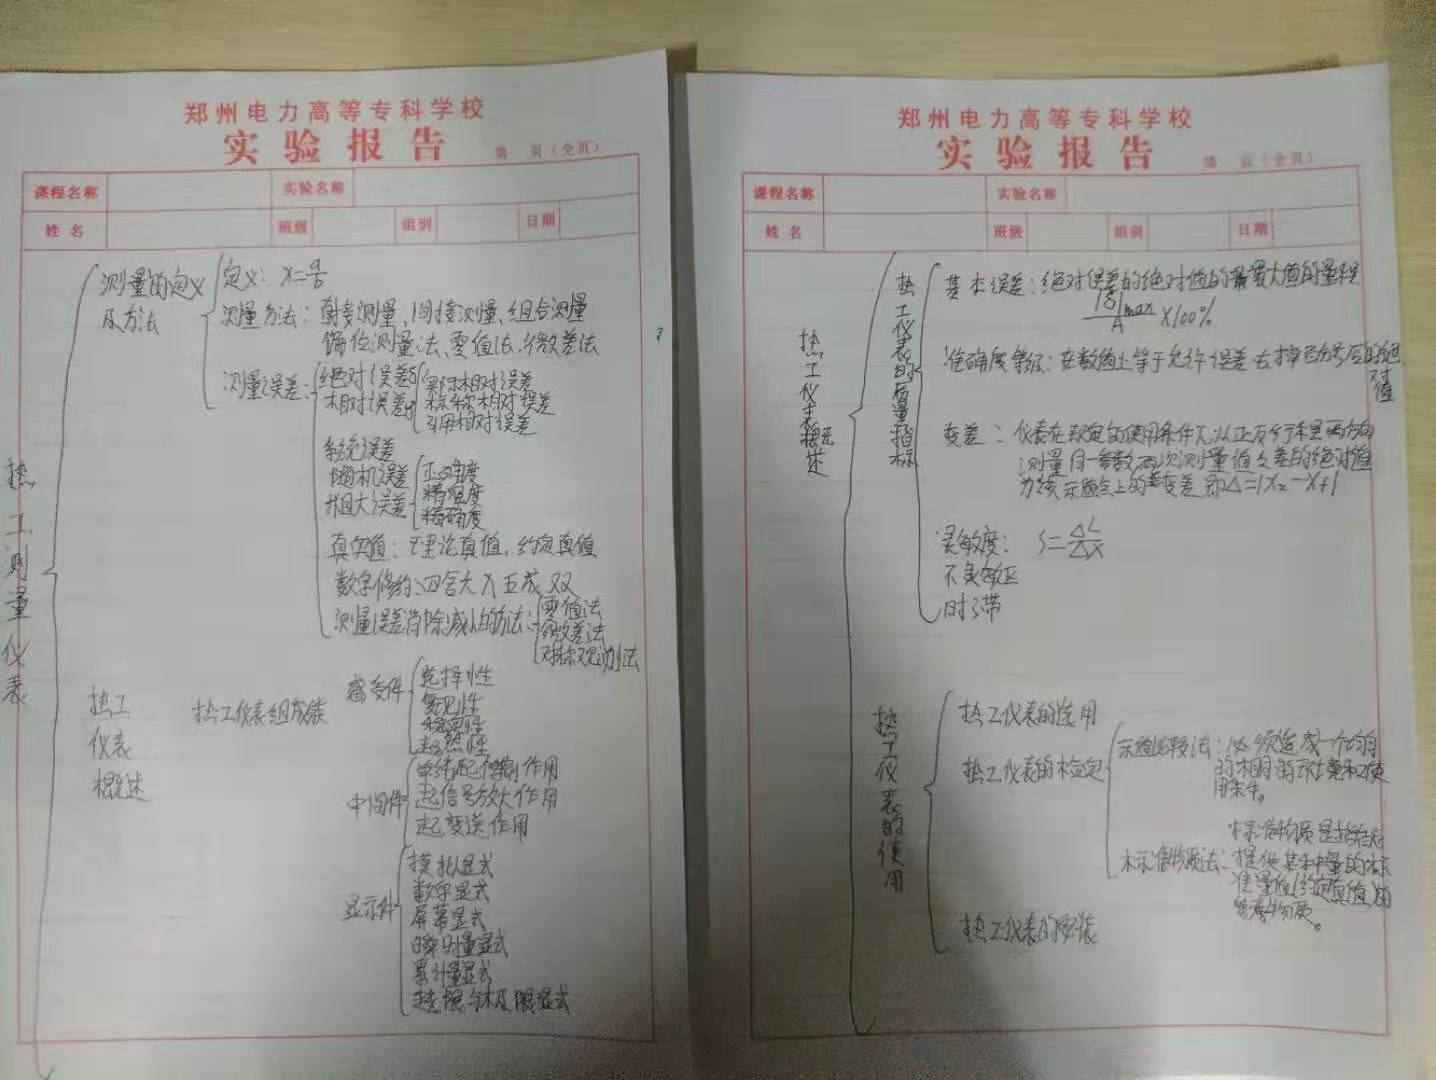 郑州电力高等专科学校
实验报告 第 页(全页)
课程名称 实验名称
姓名 班级 组别 日期
热工测量仪表
测量的定义
及方法
定义: x=a/b
测量方法: 直接测量、间接测量、组合测量
偏位测量法、零值法、微差法
测量误差:
绝对误差δ
相对误差γ
实际相对误差
标称相对误差
引用相对误差
系统误差
随机误差
粗大误差
正确度
精密度
精确度
真实值: 理论真值,约定真值
数字修约:四舍六入五成双
测量误差消除减小的方法:
零值法
微差法
对称观测法
热工
仪表
概述
热工仪表组成
感受件
选择性
复现性
稳定性
超然性
中间件
单纯起传输作用
起信号放大作用
起变送作用
显示件
模拟显式
数字显式
屏幕显式
瞬时量显式
累计量显式
越限与极限显式
郑州电力高等专科学校
实验报告 第 页(全页)
课程名称 实验名称
姓名 班级 组别 日期
热工仪表概述
热工仪表的质量指标
基本误差:绝对误差的绝对值的最大值的量程
|δ|max/A ×100%
准确度等级: 在数值上等于允许误差去掉百分号后的绝对值
变差: 仪表在规定的使用条件下,从正反行程两方向
测量同一参数,两次测量值之差的绝对值
为该示值点上的变差 即Δ=|X₂-X₁|
灵敏度: S=ΔL/ΔX
不灵敏区
时滞
热工仪表的使用
热工仪表的选用
热工仪表的检定
示值比较法: 必须造成一个均匀
的相同的环境和使
用条件。
标准物质法:
标准物质是指能
提供某种量的标
准量值(约定真值)的
参考物质。
热工仪表的安装